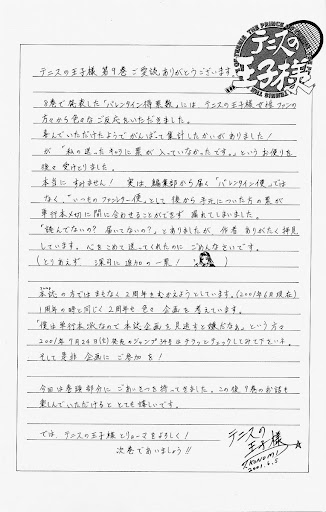 THE PRINCE OF TENNIS
テニスの
王子様
テニスの王子様第9巻ご愛読ありがとうございます!
8巻で発表した「バレンタイン得票数」には、テニスの王子様女性ファンの
方々から色々なご反応をいただきました。
喜んでいただけたようでがんばって集計したかいがありました!
が「私の送ったキャラに票が入っていなかったです。」というお便りを
様々受けとりました。
本当にすみません! 実は、編集部から届く「バレンタイン便」では
なく、「いつものファンレター便」として後から手元についた方の票が
単行本〆切に間に合わせることができず漏れてしまいました。
"読んでないの? 届いてないの?"とありましたが、作者ありがたく拝見
しています。心をこめて送ってくれたのにごめんなさいです。
(とりあえず 深司に追加の一票!
本誌の方ではまもなく2周年をむかえようとしています。(2001年6月現在)
1周年の時と同じく2周年も色々企画を考えています。
「僕は単行本派なので本誌企画を見逃すと嫌だなぁ。」という方々
2001年7月24日(火)発売のジャンプ34号はチラッとチェックしてみて下さいネ。
そして是非企画にご参加を!
今回は巻頭部分にごあいさつを持ってきました。この後9巻のお話も
楽しんでいただけるととても嬉しいです。
では、テニスの王子様とリョーマをよろしく!
次巻であいましょう!!
テニスの
王子様
T.KONOMI
2001.6.5